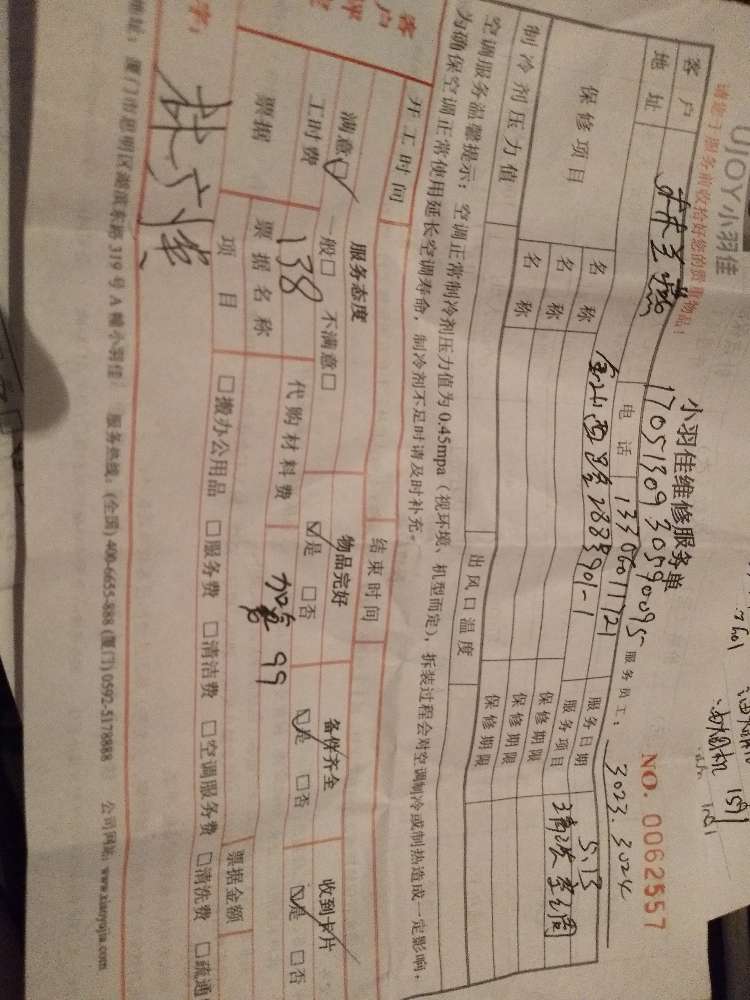 UJOY小羽佳
请您于服务前收拾好您的贵重物品!
小羽佳维修服务单
NO. 0062557
17051309305990095
客户 电话 13306011721 服务员工: 3023.3024
地址 服务日期 5.13
保修项目 名称 服务项目
名称 保修期限
名称 保修期限
制冷剂压力值 出风口温度 保修期限
空调服务温馨提示:空调正常制冷剂压力值为0.45mpa(视环境、机型而定),拆装过程会对空调制冷或制热造成一定影响,
为确保空调正常使用延长空调寿命,制冷剂不足时请及时补充。
开工时间 结束时间
客户评 服务态度 物品完好 备件齐全 收到卡片
满意☑ 一般□ 不满意□ ☑是 □否 ☑是 □否 ☑是 □否
工时费 138 代购材料费 99
票据 票据名称 票据金额
项目 □搬办公用品 □服务费 □清洁费 □空调服务费 □清洗费 □疏通
字:
地址:厦门市思明区湖滨东路319号A幢小羽佳 服务热线:(全国)400-6655-888 (厦门)0592-5178888 公司网站:www.xiaoyujia.com